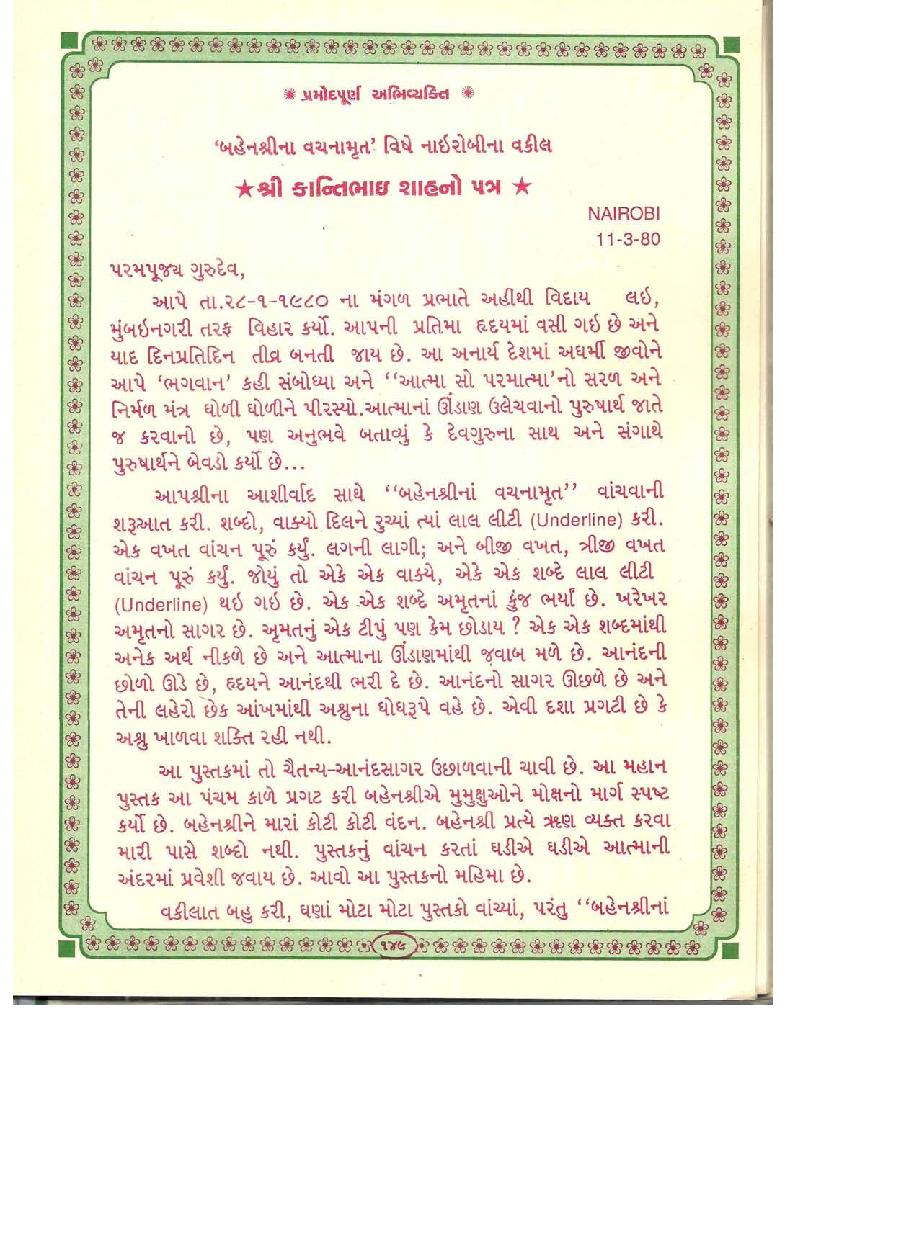 પ્રમોદપૂર્ણ અભિવ્યક્તિ
‘બહેનશ્રીના વચનામૃત’ વિષે નાઇરોબીના વકીલ
★શ્રી કાન્તિભાઇ શાહનો પત્ર ★
NAIROBI
11-3-80
પરમપૂજ્ય ગુરુદેવ,
આપે તા.૨૮-૧-૧૯૮૦ ના મંગળ પ્રભાતે અહીથી વિદાય લઇ,
મુંબઇનગરી તરફ વિહાર કર્યો. આપની પ્રતિમા હૃદયમાં વસી ગઇ છે અને
યાદ દિનપ્રતિદિન તીવ્ર બનતી જાય છે. આ અનાર્ય દેશમાં અધર્મી જીવોને
આપે ‘ભગવાન’ કહી સંબોધ્યા અને ‘‘આત્મા સો પરમાત્મા’નો સરળ અને
નિર્મળ મંત્ર ઘોળી ઘોળીને પીરસ્યો.આત્માનાં ઊંડાણ ઉલેચવાનો પુરુષાર્થ જાતે
જ કરવાનો છે, પણ અનુભવે બતાવ્યું કે દેવગુરુના સાથ અને સંગાથે
પુરુષાર્થને બેવડો કર્યો છે...
આપશ્રીના આશીર્વાદ સાથે ‘‘બહેનશ્રીનાં વચનામૃત’’ વાંચવાની
શરૂઆત કરી. શબ્દો, વાક્યો દિલને રુચ્યાં ત્યાં લાલ લીટી (Underline) કરી.
એક વખત વાંચન પૂરું કર્યું. લગની લાગી; અને બીજી વખત, ત્રીજી વખત
વાંચન પૂરું કર્યું. જોયું તો એકે એક વાક્યે, એકે એક શબ્દે લાલ લીટી
(Underline) થઇ ગઇ છે. એક એક શબ્દે અમૃતનાં કુંજ ભર્યાં છે. ખરેખર
અમૃતનો સાગર છે. અૃમતનું એક ટીપું પણ કેમ છોડાય ? એક એક શબ્દમાંથી
અનેક અર્થ નીકળે છે અને આત્માના ઊંડાણમાંથી જવાબ મળે છે. આનંદની
છોળો ઊડે છે, હૃદયને આનંદથી ભરી દે છે. આનંદનો સાગર ઊછળે છે અને
તેની લહેરો છેક આંખમાંથી અશ્રુના ધોધરૂપે વહે છે. એવી દશા પ્રગટી છે કે
અશ્રુ ખાળવા શક્તિ રહી નથી.
આ પુસ્તકમાં તો ચૈતન્ય-આનંદસાગર ઉછાળવાની ચાવી છે. આ મહાન
પુસ્તક આ પંચમ કાળે પ્રગટ કરી બહેનશ્રીએ મુમુક્ષુઓને મોક્ષનો માર્ગ સ્પષ્ટ
કર્યો છે. બહેનશ્રીને મારાં કોટી કોટી વંદન. બહેનશ્રી પ્રત્યે ઋણ વ્યક્ત કરવા
મારી પાસે શબ્દો નથી. પુસ્તકનું વાંચન કરતાં ઘડીએ ઘડીએ આત્માની
અંદરમાં પ્રવેશી જવાય છે. આવો આ પુસ્તકનો મહિમા છે.
વકીલાત બહુ કરી, ઘણાં મોટા મોટા પુસ્તકો વાંચ્યાં, પરંતુ ‘‘બહેનશ્રીનાં
૧૪૯